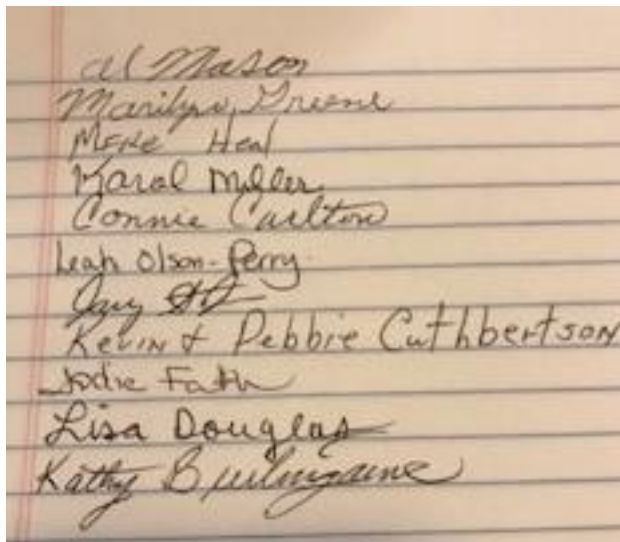 al Mason
Marilyn Greene
Mike Heal
Karol Miller
Connie Carlton
Leah Olson-Perry
Kevin & Debbie Cuthbertson
Jodie Fath
Lisa Douglas
Kathy Burlingame